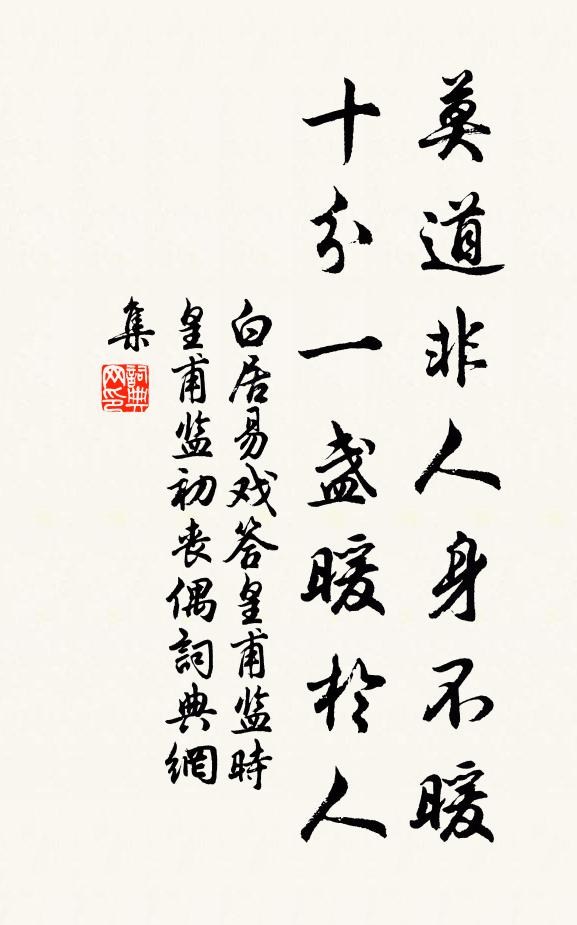 莫道非人身不暖
十分一盏暖於人
白居易戏答皇甫监時
皇甫监初丧偶詞典網
集
詞典
网印